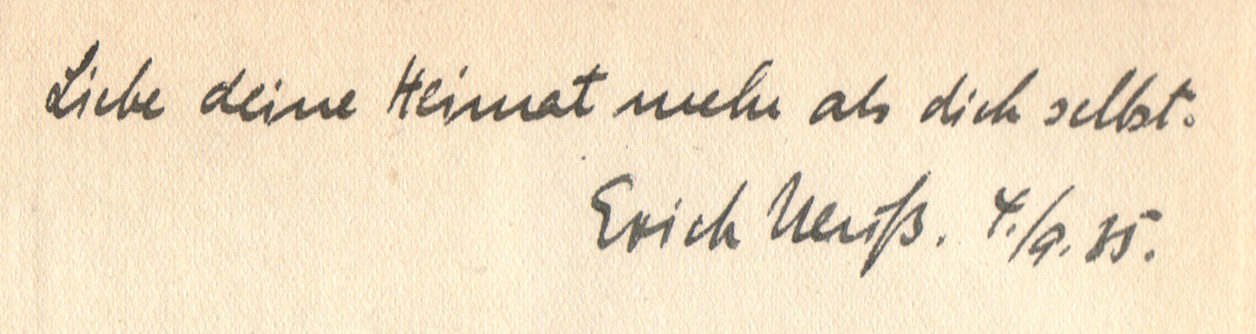 Liebe deine Heimat mehr als dich selbst.
Erich Neuß. 4./9. 35.